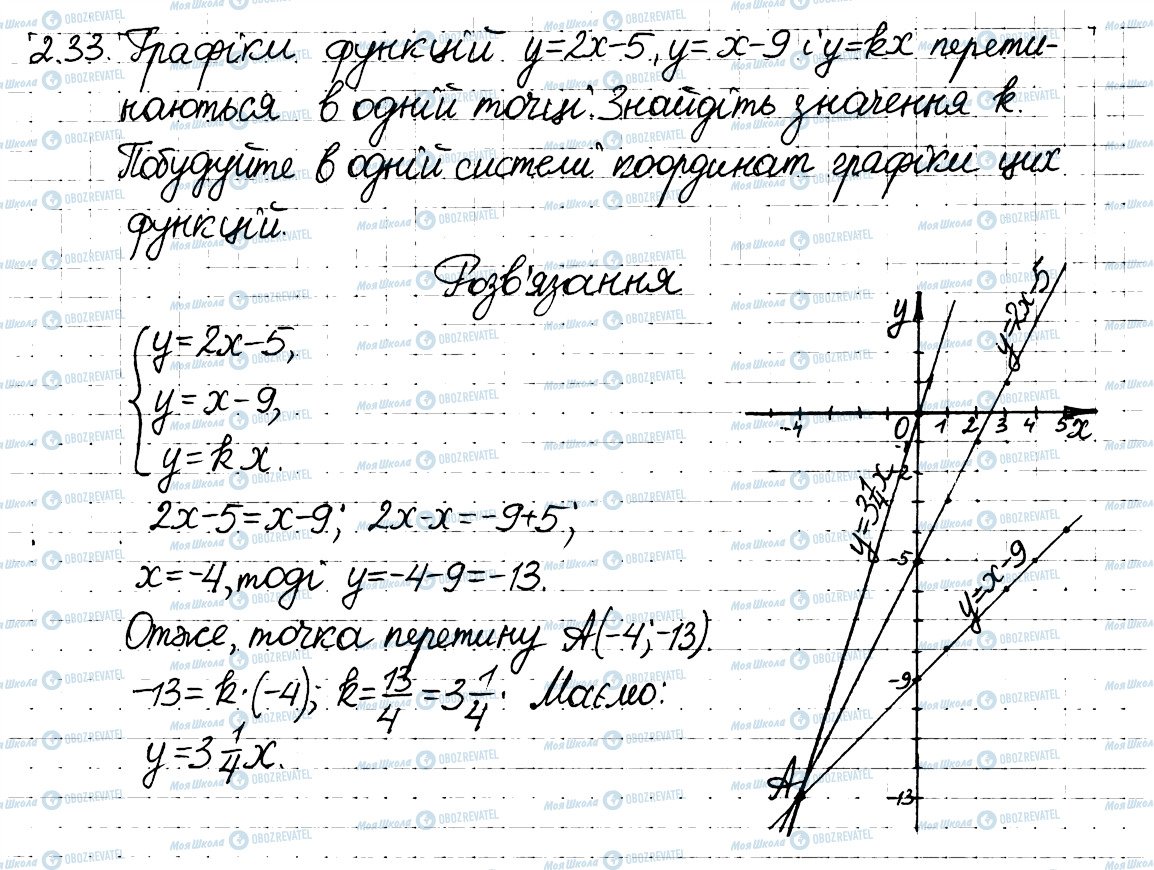 2.33. Графіки функцій y=2x-5, y=x-9 і y=kx перети-
наються в одній точці. Знайдіть значення k.
Побудуйте в одній системі координат графіки цих
функцій.
Розв'язання
y=2x-5,
y=x-9,
y=kx.
2x-5=x-9; 2x-x=-9+5;
x=-4, тоді y=-4-9=-13.
Отже, точка перетину A(-4;-13).
-13=k·(-4); k=13/4=3 1/4. Маємо:
y=3 1/4 x.
y
y=2x-5
-4 0 1 2 3 4 5 x
-2
y=3 1/4 x
-5
y=x-9
-9
A
-13
Моя Школа OBOZREVATEL